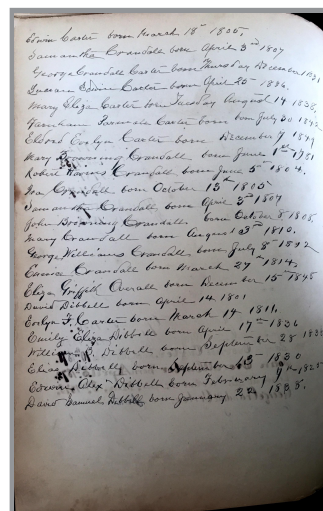 Edwin Carter born March 18th 1805.
Samantha Crandall born April 3rd 1807
George Crandall Carter born Thursday December 1831
Edwin Carter born April 25th 1834.
Mary Eliza Carter born Tuesday August 14 1838.
Carter born July 30 1842
Evelyn Carter born December 9 1849
Mary Browning Crandall born June 1st 1781
Robert Crandall born June 5th 1804.
Ira Crandall born October 13th 1805
Samantha Crandall born April 3rd 1807
John Browning Crandall born October 5 1808.
Mary Crandall born August 13th 1810.
George Williams Crandall born July 8th 1812
Eunice Crandall born March 27th 1814
Eliza Griffith Overall born December 15th 1845
David Dibbell born April 14 1801
Evelyn F. Carter born March 14 1811.
Emily Eliza Dibbell born April 17th 1836
William P. Dibbell born September 28
Elias Dibbell born September 13 1830
Edwin Alex Dibbell born February 9th 1828
David Samuel Dibbell born January 22 1838.